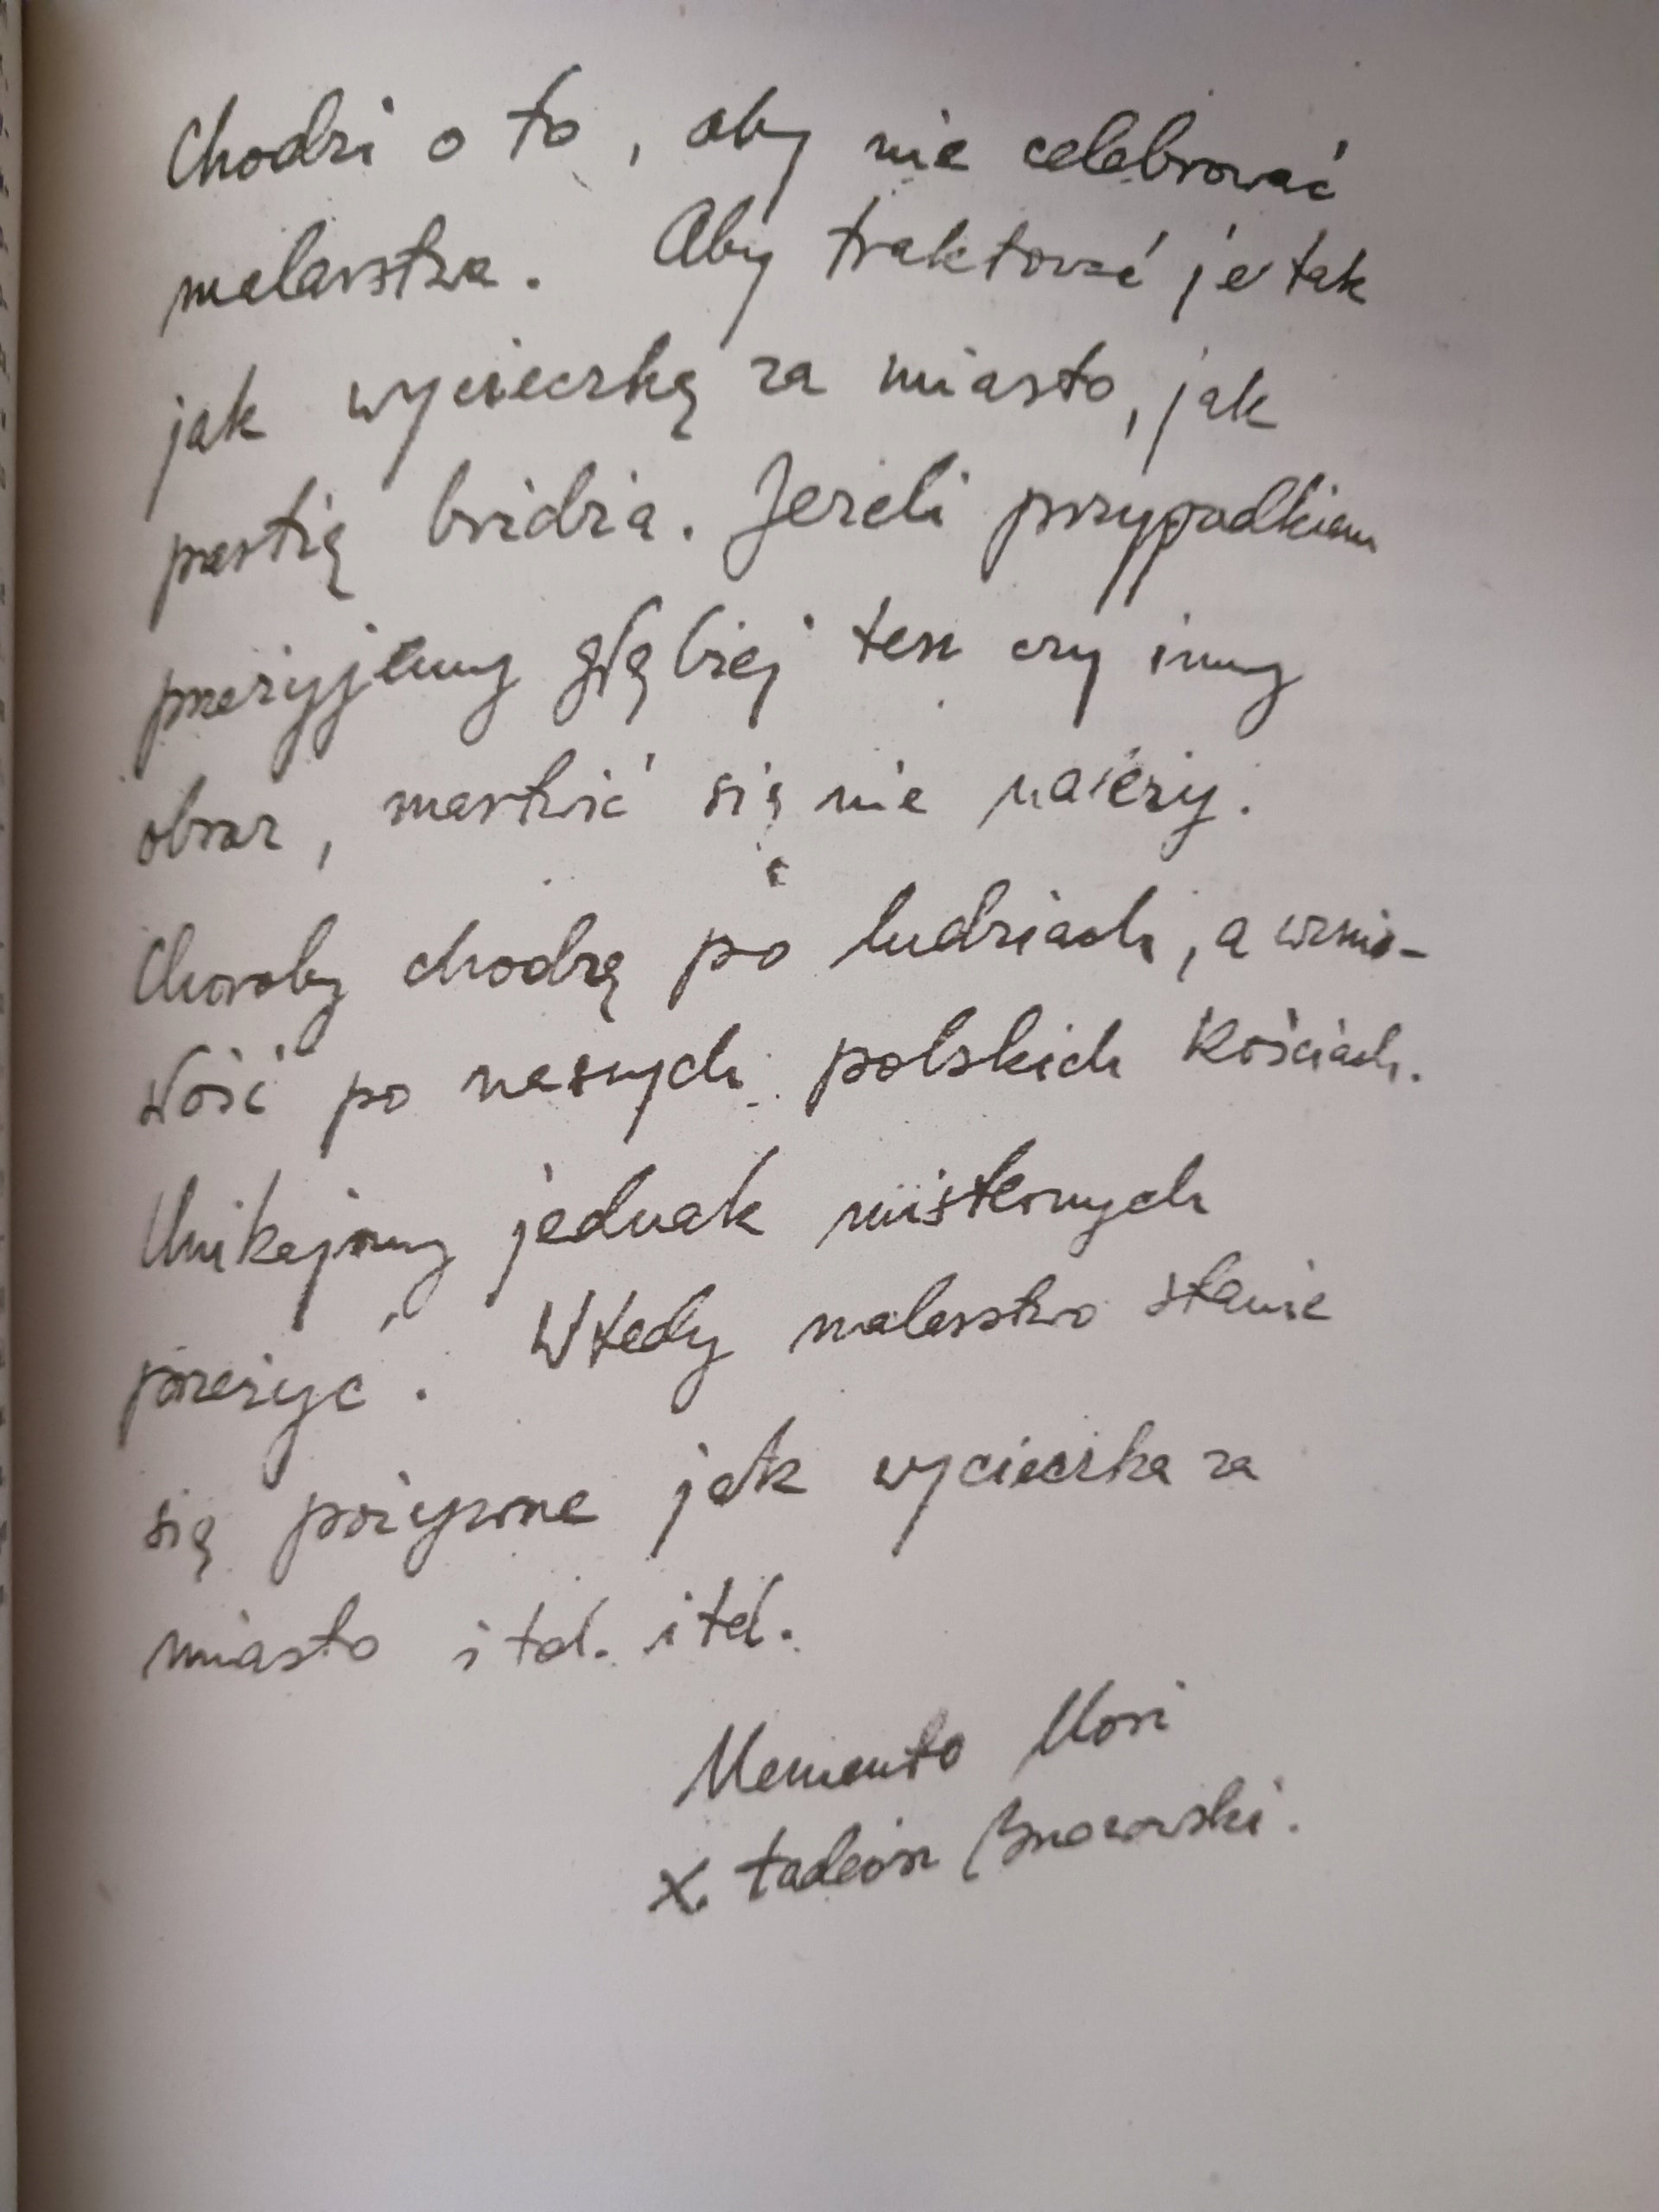 Chodzi o to, aby nie celebrować
malarstwa. Aby traktować je tak
jak wycieczkę za miasto, jak
partię bridża. Jeżeli przypadkiem
przeżyjemy głębiej ten czy inny
obraz, martwić się nie należy.
Choroby chodzą po ludziach, a wznio-
słość po naszych polskich kościach.
Unikajmy jednak
przeżyć. Wtedy malarstwo stanie
się pożywne jak wycieczka za
miasto itd. itd.
Memento Mori
X. Tadeusz